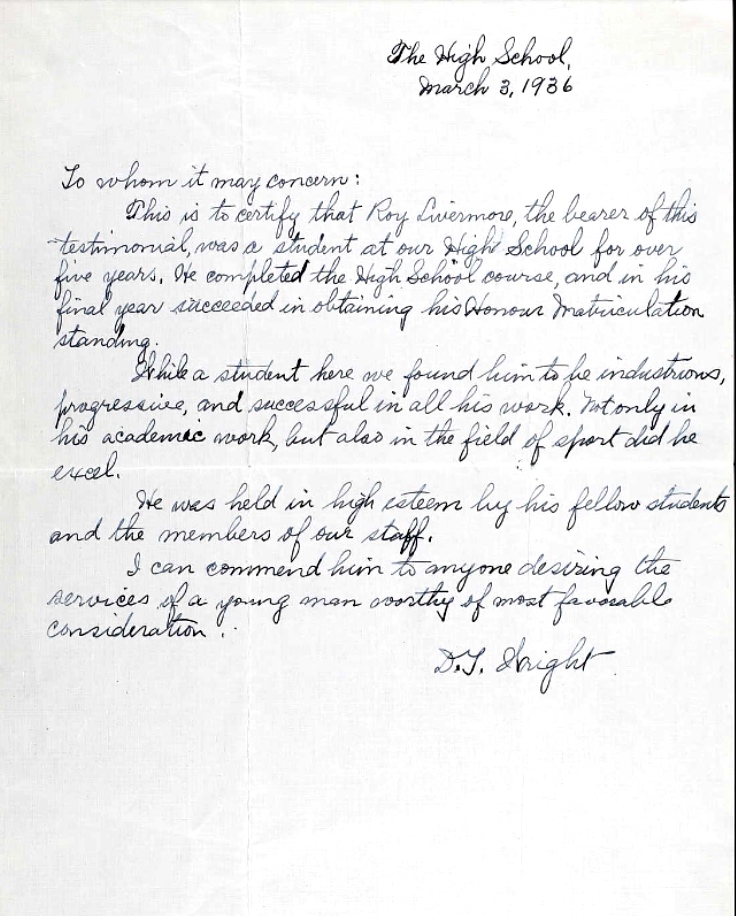 The High School,
March 3, 1936
To whom it may concern:
This is to certify that Roy Livermore, the bearer of this
testimonial, was a student at our High School for over
five years. He completed the High School course, and in his
final year succeeded in obtaining his Honour Matriculation
standing.
While a student here we found him to be industrious,
progressive, and successful in all his work. Not only in
his academic work, but also in the field of sport did he
excel.
He was held in high esteem by his fellow students
and the members of our staff.
I can commend him to anyone desiring the
services of a young man worthy of most favorable
consideration.
D.T. Wright